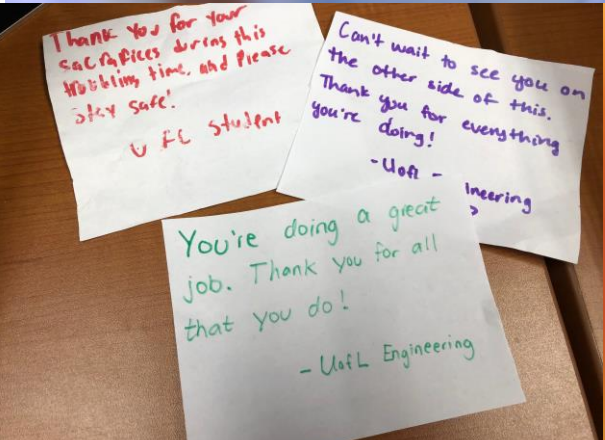 Thank You for Your
sacrafices during this
troubling time, and Please
stay safe!
U FL student
Can't wait to see you on
the other side of this.
Thank you for everything
you're doing!
-UofL -
ineering
You're doing a great
job. Thank you for all
that you do!
- UofL Engineering